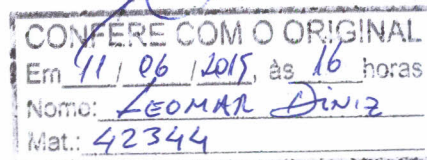 CONFERE COM O ORIGINAL
Em 11 / 06 / 2015, às 16 horas
Nome: LEOMAR DINIZ
Mat.: 42344